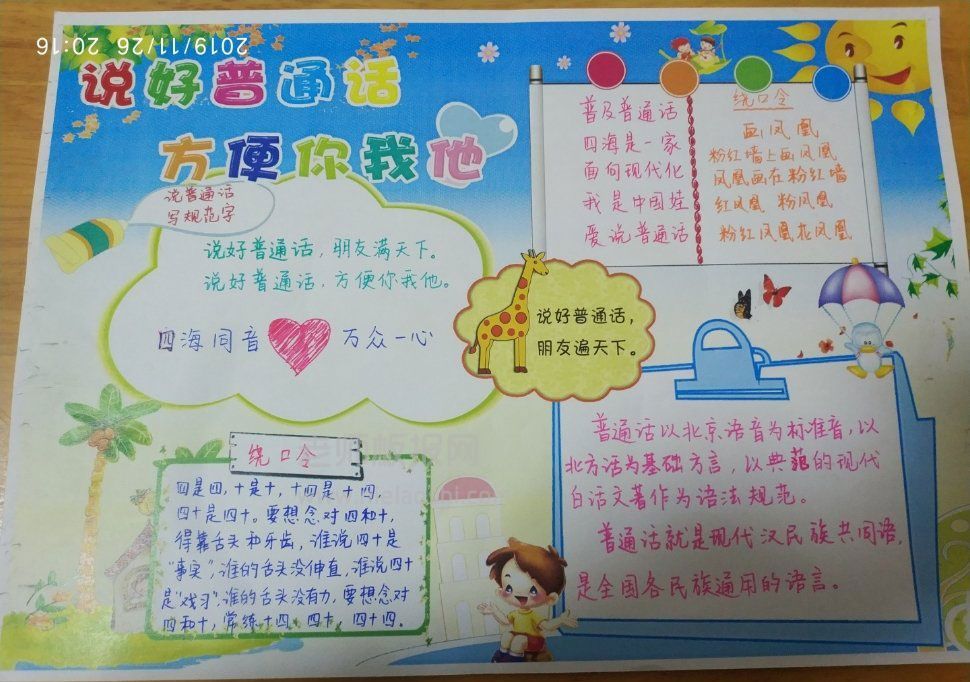 2019/11/26 20:16
说好普通话
方便你我他
说普通话
写规范字
说好普通话，朋友满天下。
说好普通话，方便你我他。
四海同音 万众一心
普及普通话
四海是一家
面向现代化
我是中国娃
爱说普通话
绕口令
画凤凰
粉红墙上画凤凰
凤凰画在粉红墙
红凤凰 粉凤凰
粉红凤凰花凤凰
说好普通话，
朋友遍天下。
绕口令
四是四，十是十，十四是十四，
四十是四十。要想念对四和十，
得靠舌头和牙齿，谁说四十是
“事实”，谁的舌头没伸直，谁说四十
是“戏习”，谁的舌头没有力，要想念对
四和十，常练十四、四十、四十四．
普通话以北京语音为标准音，以
北方话为基础方言，以典范的现代
白话文著作为语法规范。
普通话就是现代汉民族共同语，
是全国各民族通用的语言。